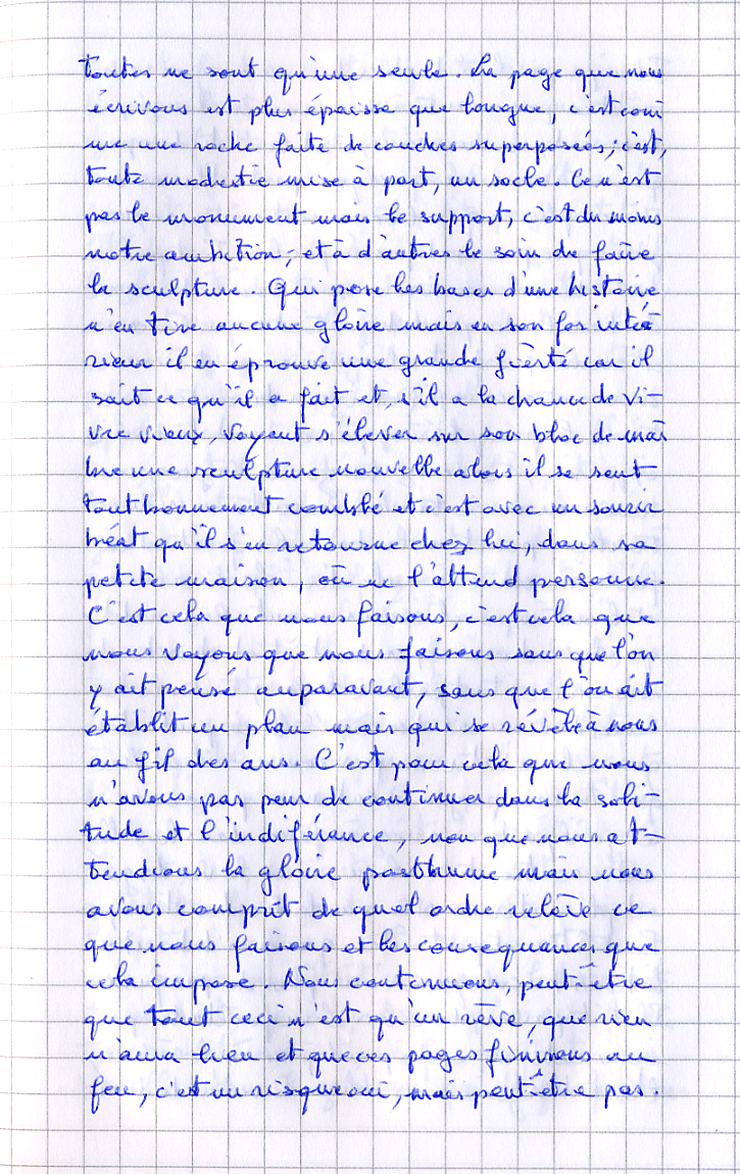 toutes ne sont qu'une seule. La page que nous
écrivons est plus épaisse que longue, c'est com
me une roche faite de couches superposées; c'est,
toute modestie mise à part, un socle. Ce n'est
pas le monument mais le support, c'est du moins
notre ambition; et à d'autres le soin de faire
la sculpture. Qui pose les bases d'une histoire
n'en tire aucune gloire mais en son for inté
rieur il en éprouve une grande fierté car il
sait ce qu'il a fait et, s'il a la chance de vi-
vre vieux, voyant s'élever sur son bloc de mar
bre une sculpture nouvelle alors il se sent
tout bonnement comblé et c'est avec un sourir
béat qu'il s'en retourne chez lui, dans sa
petite maison, où ne l'attend personne.
C'est cela que nous faisons, c'est cela que
nous voyons que nous faisons sans que l'on
y ait pensé auparavant, sans que l'on ait
établit un plan mais qui se révèle à nous
au fil des ans. C'est pour cela que nous
n'avons pas peur de continuer dans la soli-
tude et l'indiférance, non que nous at-
tendions la gloire posthume mais nous
avons comprit de quel ordre relève ce
que nous faisons et les consequances que
cela impose. Nous continuons, peut-être
que tout ceci n'est qu'un rêve, que rien
n'aura lieu et que ces pages finirons au
feu, c'est un risque oui, mais peut-être pas.